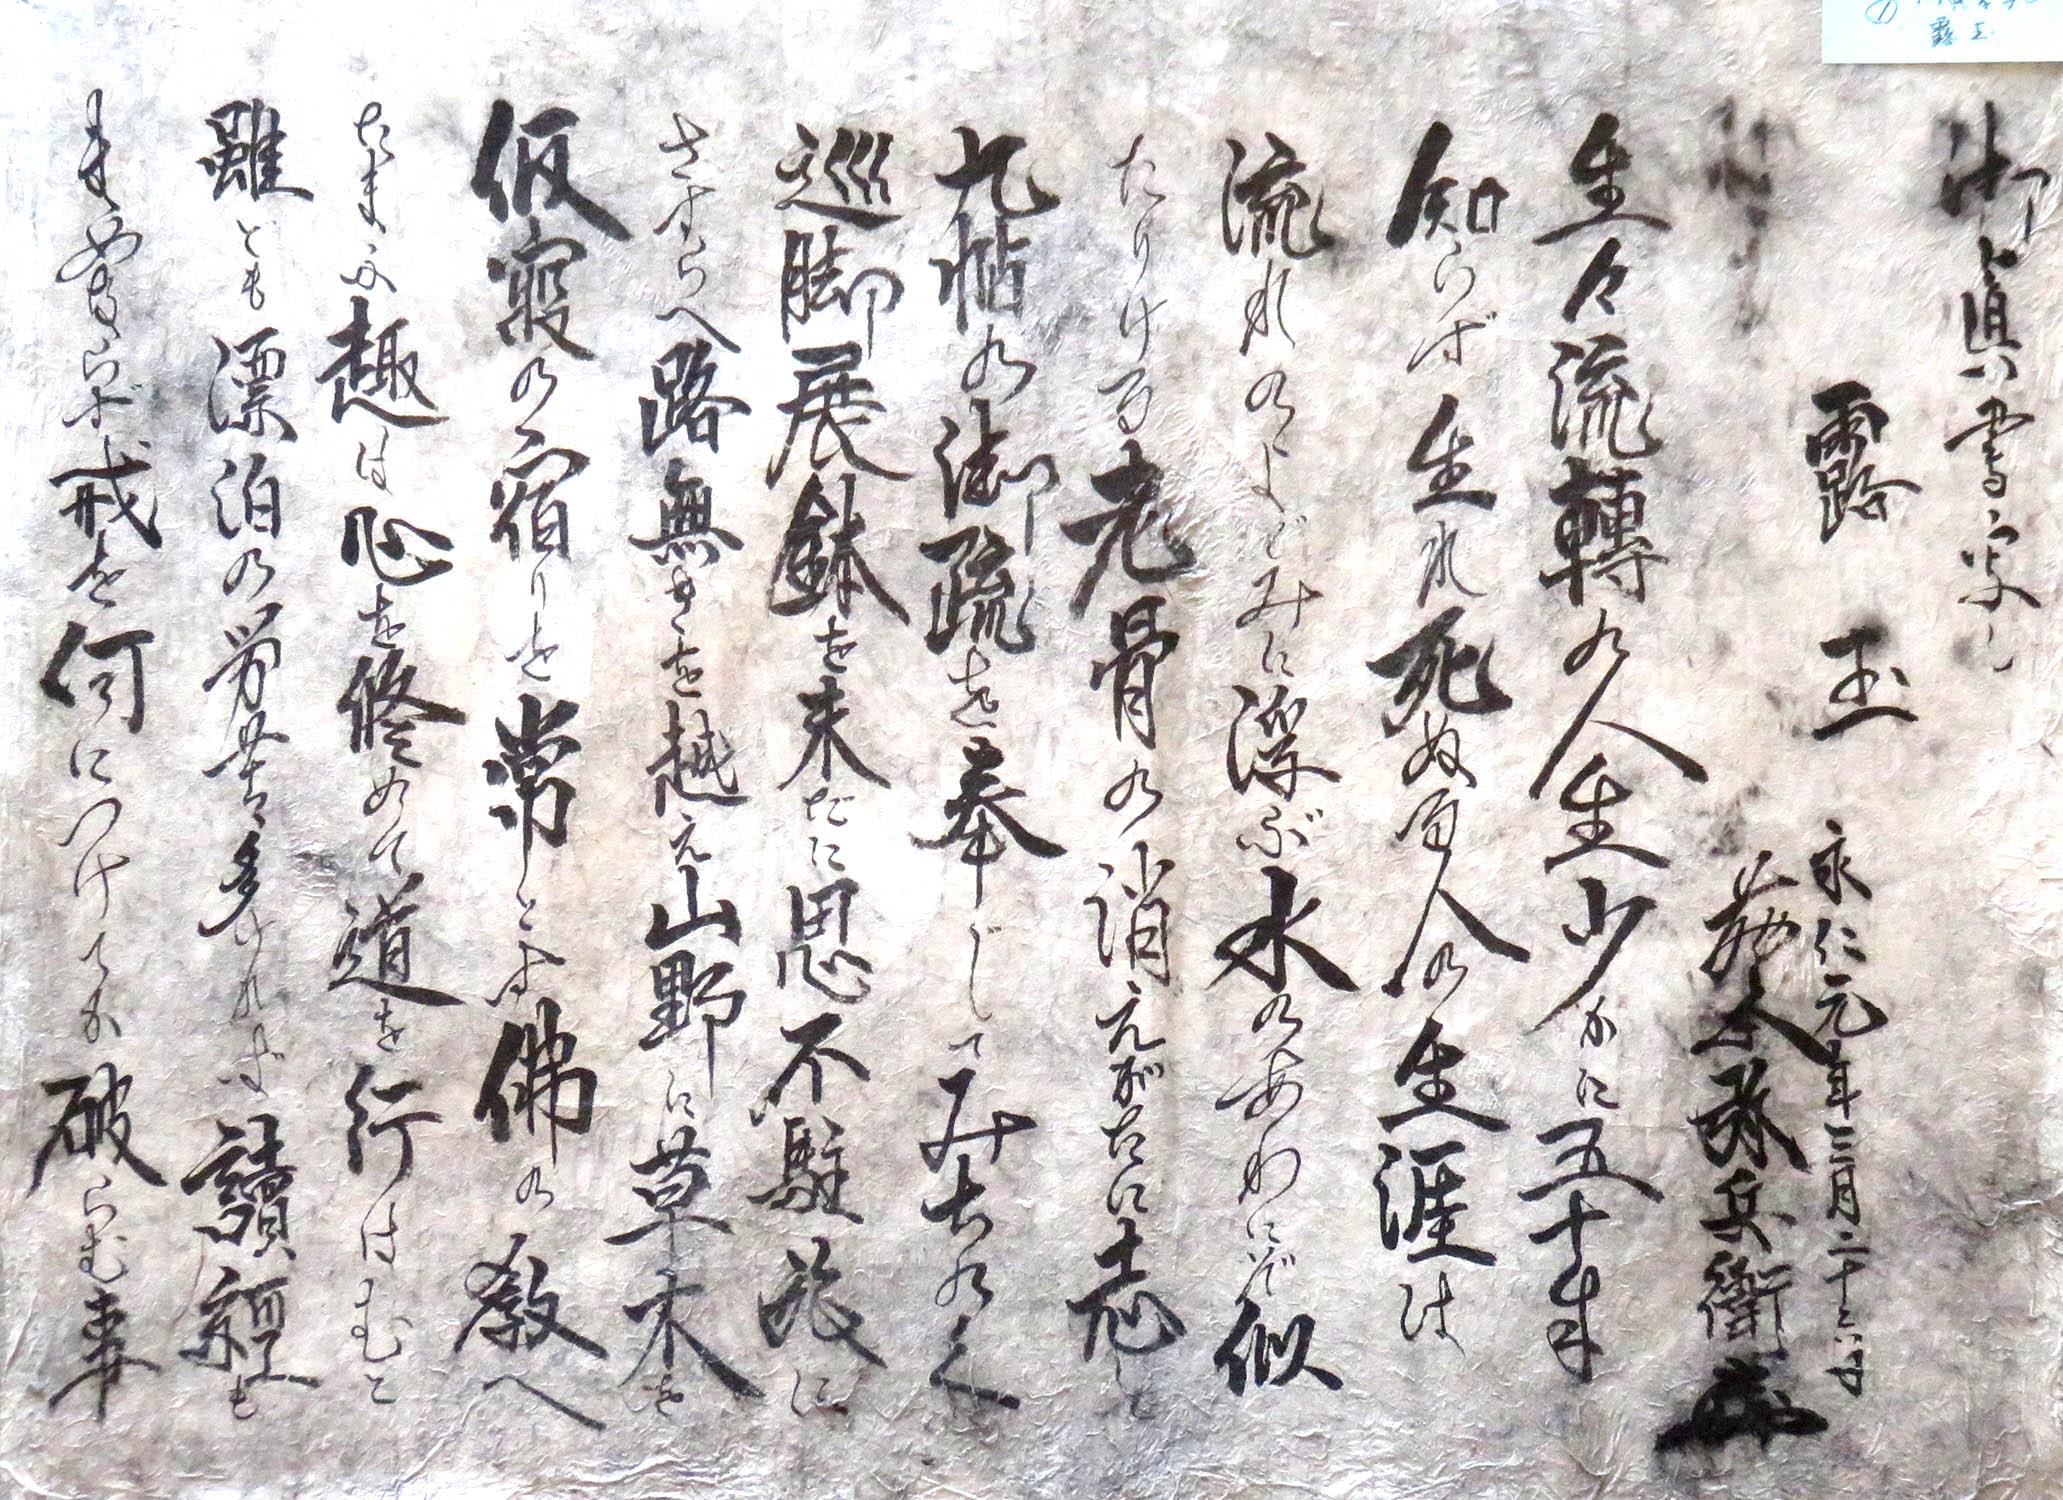 御真書写し
露玉
永仁元年三月二十六日
蔵人弥兵衛
生々流轉の人生少かに五十年
知らず生れ死ぬる人の生涯は
流れのよどみに浮ぶ水のあわにぞ似
たりける老骨の消えがたに志と
九帖の御疏を奉じてみちのく
巡脚展鉢を未だに思不駐花に
さすらへ路無きを越え山野に草木を
仮寝の宿りを常とす佛の教へ
たまふ趣は心を修めて道を行はむと
雖ども漂泊の労苦多ければ讀経も
まゝならず戒を何につけてか破らむ事
露玉